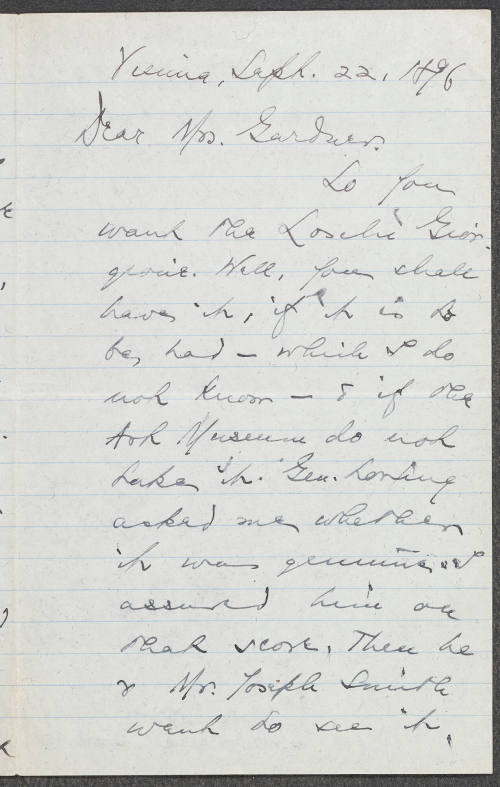 Vienna, Sept. 22, 1896
Dear Mrs. Gardner.
So you
want the Loschi Gior-
gione. Well, you shall
have it, if it is to
be, had – which I do
not know – & if the
Art Museum do not
take it. Gen. Loring
asked me whether
it was genuine & I
assured him on
that score. Then he
& Mr. Joseph Smith
went to see it,